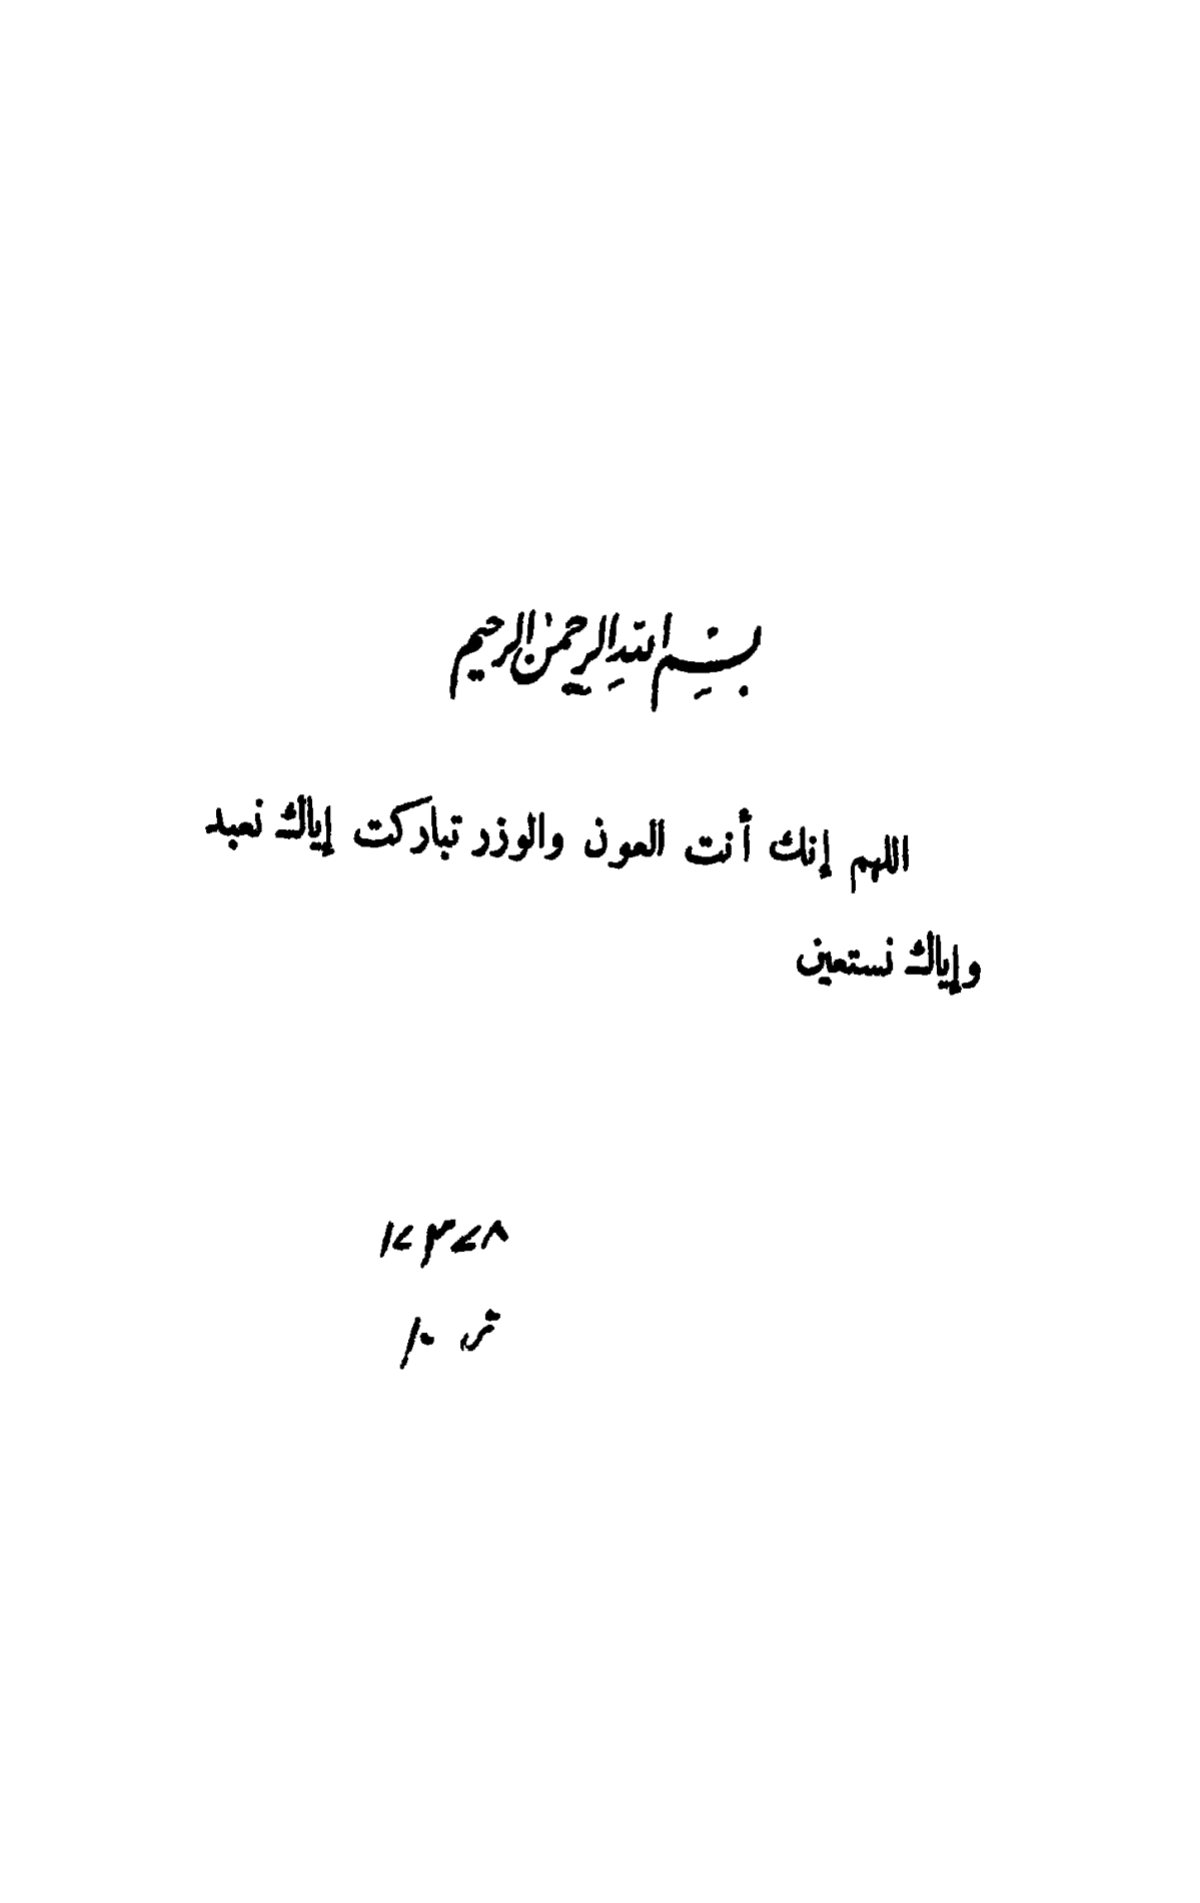 بسم الله الرحمن الرحيم
اللهم إنك أنت العون والوزر تباركت إياك نعبد
وإياك نستعين